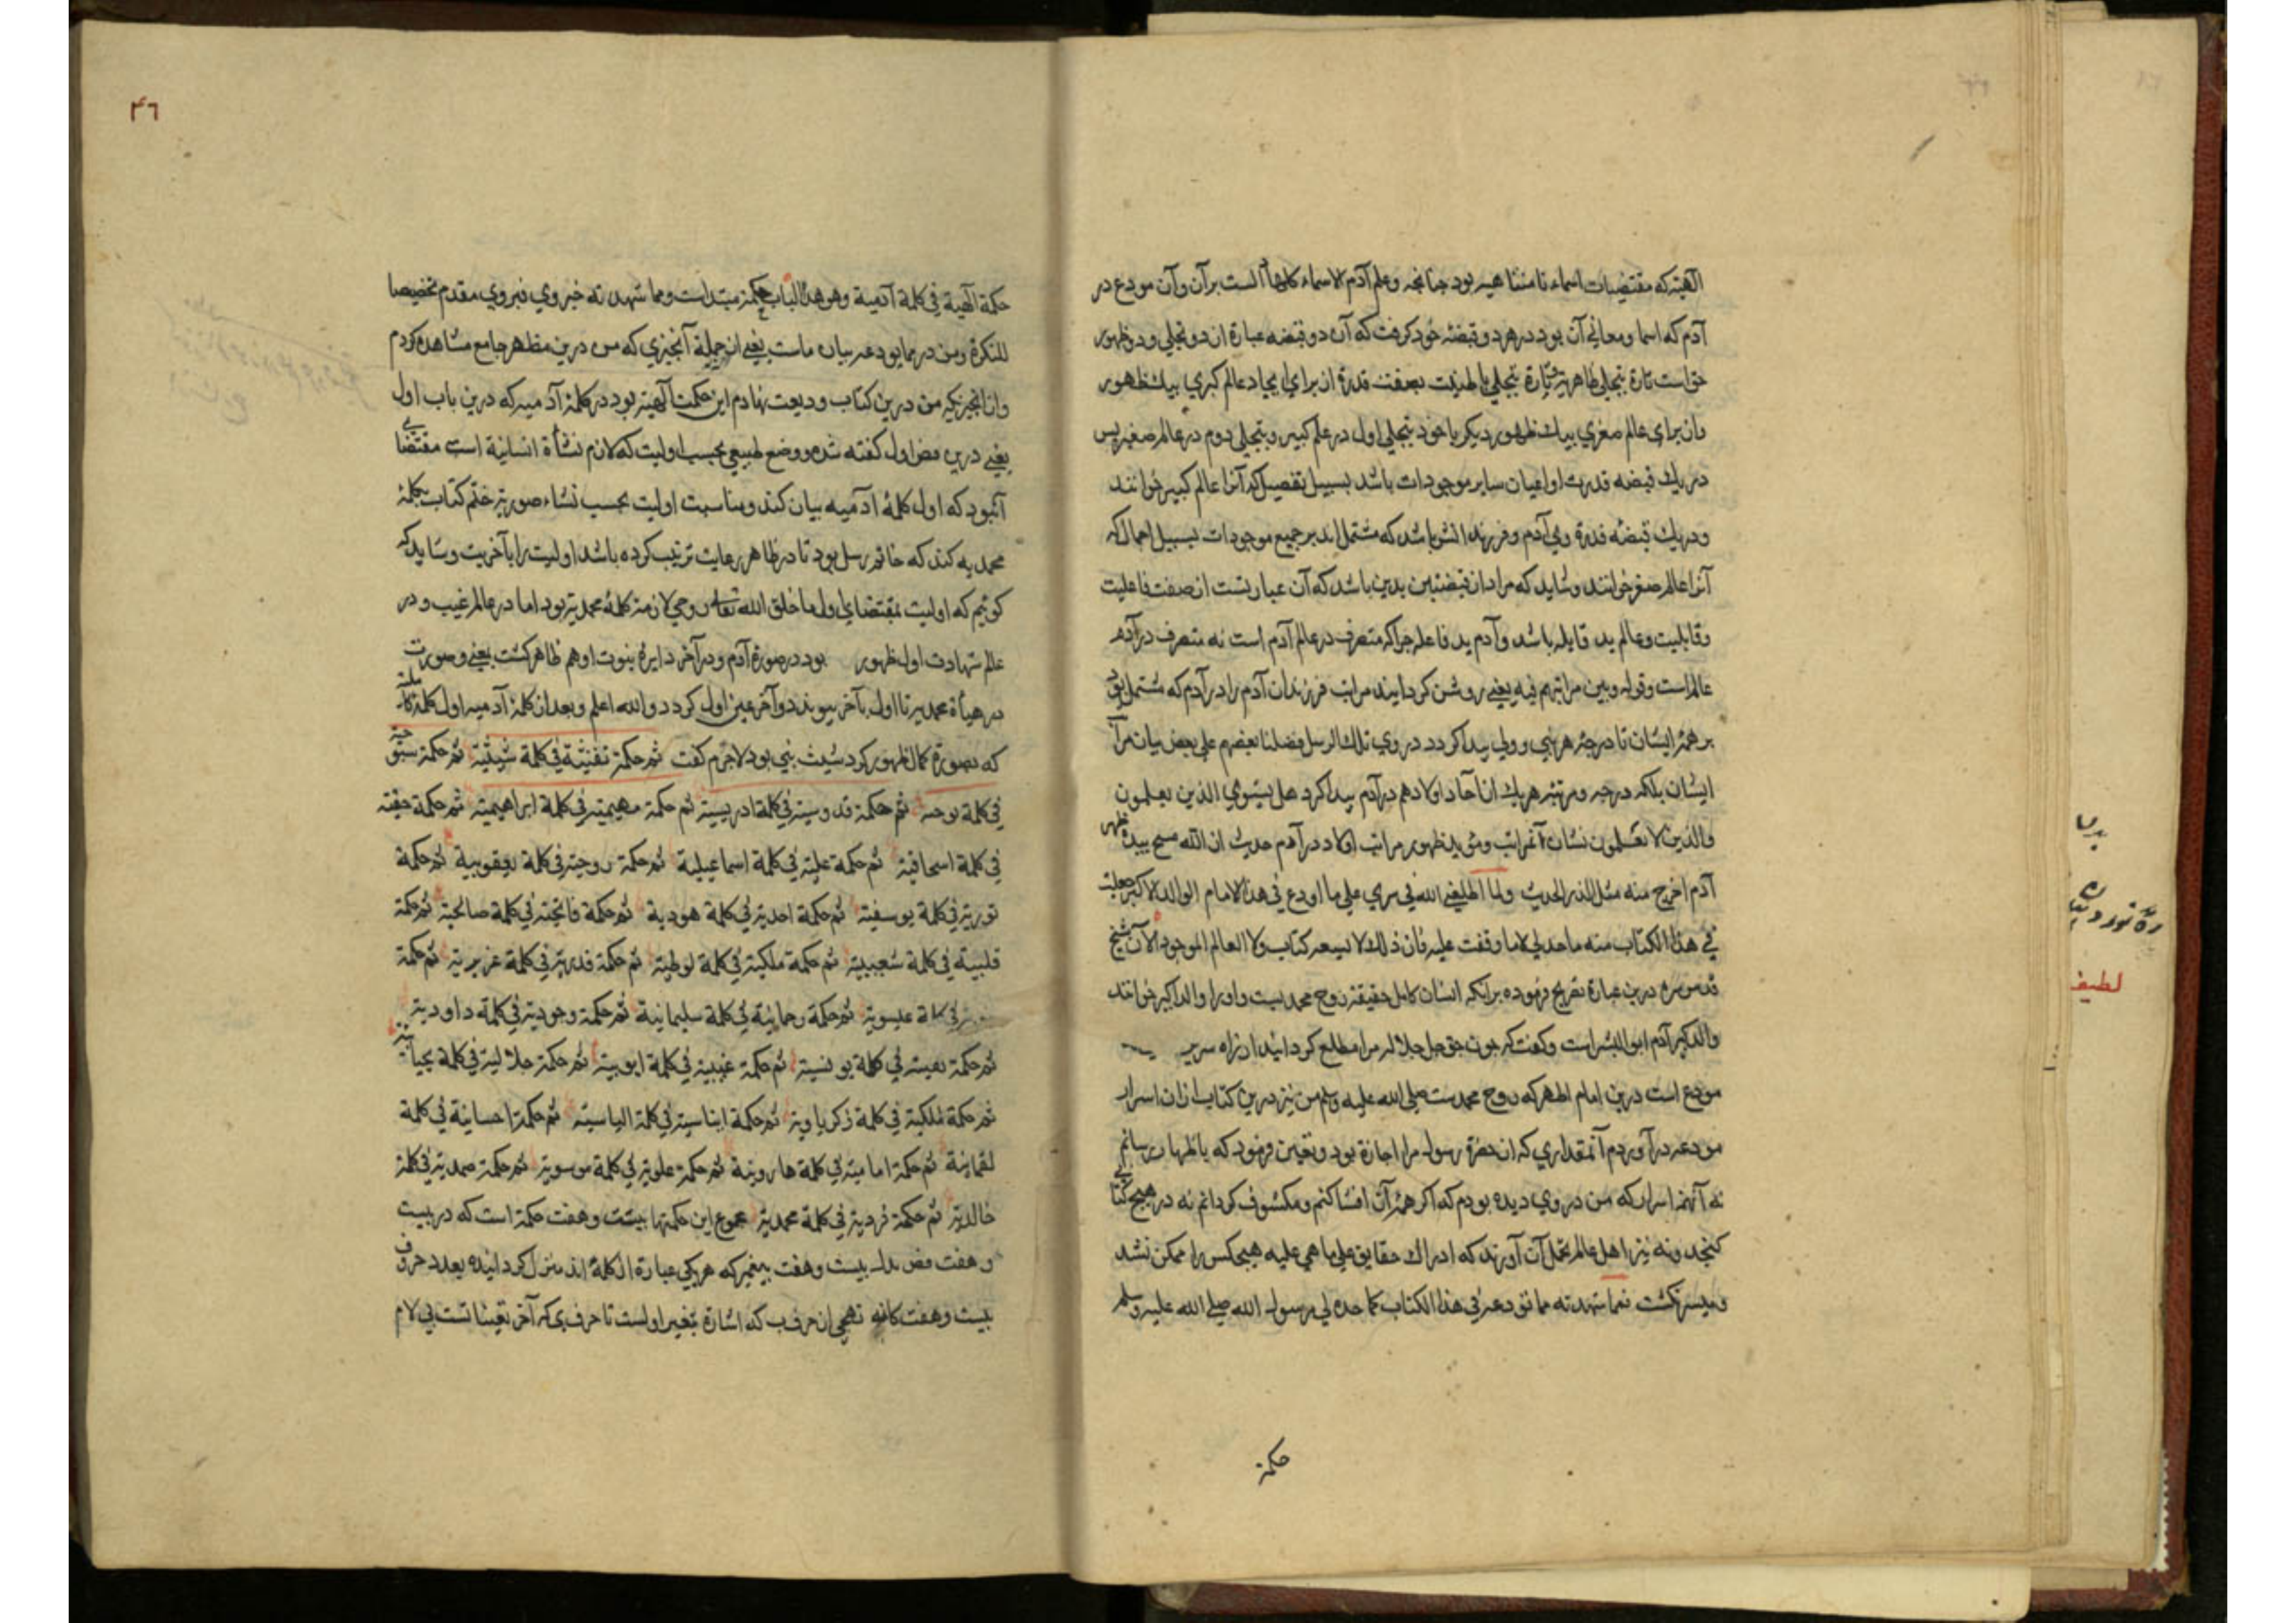 الهیته که مقتضیات اسماء نامتناهیه بود چنانچه وعلم آدم الاسماء کلها الست برآن وآن مودع در
آدم که اسما ومعانی آن بود در هر دو قبضه خود کرفت که آن دو قبضه عبارة از دو تجلی ودو ظهور
حق است تارة بتجلی ظاهریة وتارة بتجلی باطنیت بصفت قدرة از برای ایجاد عالم کبری بیک ظهور
واز برای عالم صغری بیک ظهور دیکر یا خود بتجلی اول در علم کبیر وبتجلی دوم در عالم صغیر پس
در یک قبضه قدرت او اعیان سایر موجودات باشد بسبیل تفصیل که آنرا عالم کبیر خوانند
ودر یک قبضه قدرة وی آدم وفرزندانش باشد که مشتمل اند بر جمیع موجودات بسبیل اجمال که
آنرا عالم صغیر خوانند وشاید که مراد از قبضتین یدین باشد که آن عبارتست از صفت فاعلیت
وقابلیت وعالم ید قابله باشد وآدم ید فاعله چرا که متصرف در عالم آدم است نه متصرف در آدم
عالم است وقوله وبین مراتبهم فیه یعنی روشن کردانید مراتب فرزندان آدم را در آدم که مشتمل بود
بر همه ایشان تا درجه هر نبی وولی پیدا کردد در وی تلک الرسل فضلنا بعضهم علی بعض بیان مرا
ایشان بلکه درجه ومرتبه هر یک از آحاد اولاد هم در آدم پیدا کرد هل یستوی الذین یعلمون
والذین لا یعلمون نشان آنمراتب ومؤید ظهور مراتب اولاد در آدم حدیث ان الله مسح بیده ظهر
آدم اخرج منه مثل الذر الحدیث ولما اطلعنی الله فی سری علی ما اودع فی هذا الامام الوالد الاکبر جعلت
فی هذا الکتاب منه ما حد لی لا ما وقفت علیه فان ذلک لا یسعه کتاب ولا العالم الموجود الآن شیخ
قدس سره درین عبارة تصریح فرموده برانکه انسان کامل حقیقة روح محمدیست واورا والد اکبر خوانند
والد کبیر آدم ابو البشر است وکفت که چون حق جل جلاله مرا مطلع کردانید از راه سر بر
مودع است درین امام اطهر که روح محمدست صلی الله علیه وسلم من نیز درین کتاب ازان اسرار
مودعه در آوردم آنمقداری که از حضرة رسول مرا اجازة بود وتعیین فرمود که باظهار رسانم
نه آنهمه اسرار که من در وی دیده بودم که اکر همه آن افشا کنم ومکشوف کردانم نه در هیچ کتابی
کنجد ونه نیز اهل عالم تحمل آن آورند که ادراک حقایق علی ما هی علیه هیچکس را ممکن نشد
ومیسر نکشت فما شهدته مما نودعه فی هذا الکتاب کما حده لی رسول الله صلی الله علیه وسلم
حکمة
لطیف
۴٦
حکمة آلهیة فی کلمة آدمیة وهو هذا الباب حکمة مبتداست ومما شهدته خبر وی فبروی مقدم تخصیصا
للنکرة ومن در مما نودعه بیان ماست یعنی از جمله آنچیزی که من درین مظهر جامع مشاهده کردم
وازانچیزیکه من درین کتاب ودیعت نهادم این حکمت آلهیة بود در کلمه آدمیه که درین باب اول
یعنی درین فص اول کفته شد ووضع طبیعی بحسب اولیت که لازم نشأة انسانیة است مقتضای
آنبود که اول کلمه ادمیه بیان کند ومناسبت اولیت بحسب نشاء صوریة ختم کتاب بکلمه
محمدیه کند که خاتم رسل بود تا در ظاهر رعایت ترتیب کرده باشد اولیت را بآخریت وشاید که
کوئیم که اولیت بمقتضای اول ما خلق الله تعالی روحی لازمه کلمه محمدیة بود اما در عالم غیب ودر
عالم شهادت اول ظهور بود در صورة آدم ودر آخر دایره نبوت او هم ظاهر کشت یعنی وصورت
در هیأة محمدیه تا اول بآخر پیوندد وآخر عین اول کردد والله اعلم وبعد از کلمه آدمیه اول کلمه کامله
که بصورة کمال ظهور کرد شیث نبی بود لاجرم کفت ثم حکمة نفثیة فی کلمة شیثیة ثم حکمة سبوحیة
فی کلمة نوحیة ثم حکمة قدوسیة فی کلمة ادریسیة ثم حکمة مهیمیة فی کلمة ابراهیمیة ثم حکمة حقیة
فی کلمة اسحاقیة ثم حکمة علیة فی کلمة اسماعیلیة ثم حکمة روحیة فی کلمة یعقوبیة ثم حکمة
نوریة فی کلمة یوسفیة ثم حکمة احدیة فی کلمة هودیة ثم حکمة فاتحیة فی کلمة صالحیة ثم حکمة
قلبیة فی کلمة شعیبیة ثم حکمة ملکیة فی کلمة لوطیة ثم حکمة قدریة فی کلمة عزیریة ثم حکمة
فی کلمة عیسویة ثم حکمة رحمانیة فی کلمة سلیمانیة ثم حکمة وجودیة فی کلمة داودیة
ثم حکمة نفسیة فی کلمة یونسیة ثم حکمة غیبیة فی کلمة ایوبیة ثم حکمة جلالیة فی کلمة یحیاویة
ثم حکمة ملکیة فی کلمة زکریاویة ثم حکمة ایناسیة فی کلمة الیاسیة ثم حکمة احسانیة فی کلمة
لقمانیة ثم حکمة امامیة فی کلمة هارونیة ثم حکمة علویة فی کلمة موسویة ثم حکمة صمدیة فی کلمة
خالدیة ثم حکمة فردیة فی کلمة محمدیة مجموع این حکمتها بیست وهفت حکمة است که در بیست
وهفت فص بدل بیست وهفت پیغمبر که هر یکی عبارة از کلمه اند منزل کردانیده بعدد حروف
بیست وهفت کانه تهجی از حرف ب که اشارة بتعین اولست تا حرف ی که آخر تعینات است بی لام